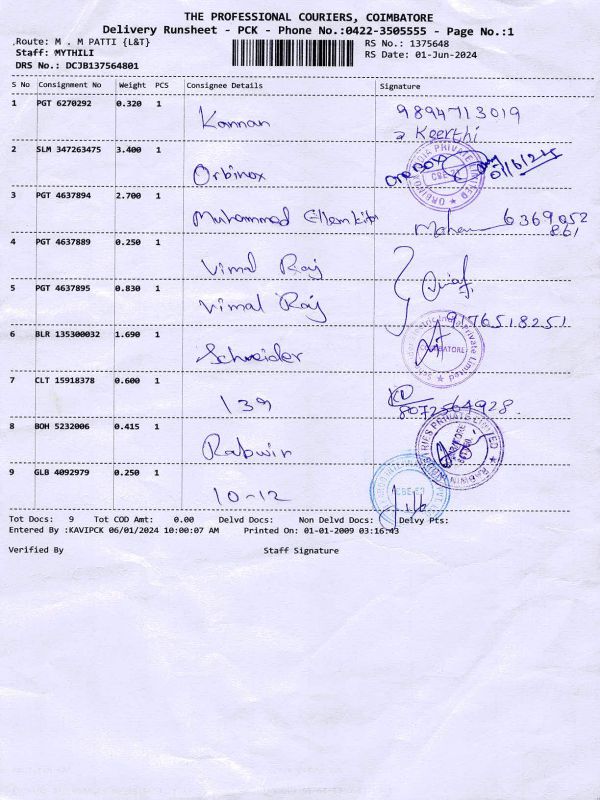 THE PROFESSIONAL COURIERS, COIMBATORE
Delivery Runsheet - PCK - Phone No.:0422-3505555 - Page No.:1
Route: M . M PATTI {L&T}
RS No.: 1375648
Staff: MYTHILI
RS Date: 01-Jun-2024
DRS No.: DCJB137564801
S No Consignment No Weight PCS Consignee Details Signature
1 PGT 6270292 0.320 1 Kannan 9894713019
Keerthi
2 SLM 347263475 3.400 1 Orbinox
3 PGT 4637894 2.700 1 Muhammad 6369052
861
4 PGT 4637889 0.250 1 Vimal Raj
5 PGT 4637895 0.830 1 Vimal Raj 9176518251
6 BLR 135300032 1.690 1 Schneider
7 CLT 15918378 0.600 1 139
8072564928
8 BOH 5232006 0.415 1 Rabwin
9 GLB 4092979 0.250 1 10-12
Tot Docs: 9 Tot COD Amt: 0.00 Delvd Docs: Non Delvd Docs: Delvy Pts:
Entered By :KAVIPCK 06/01/2024 10:00:07 AM Printed On: 01-01-2009 03:16:43
Verified By Staff Signature